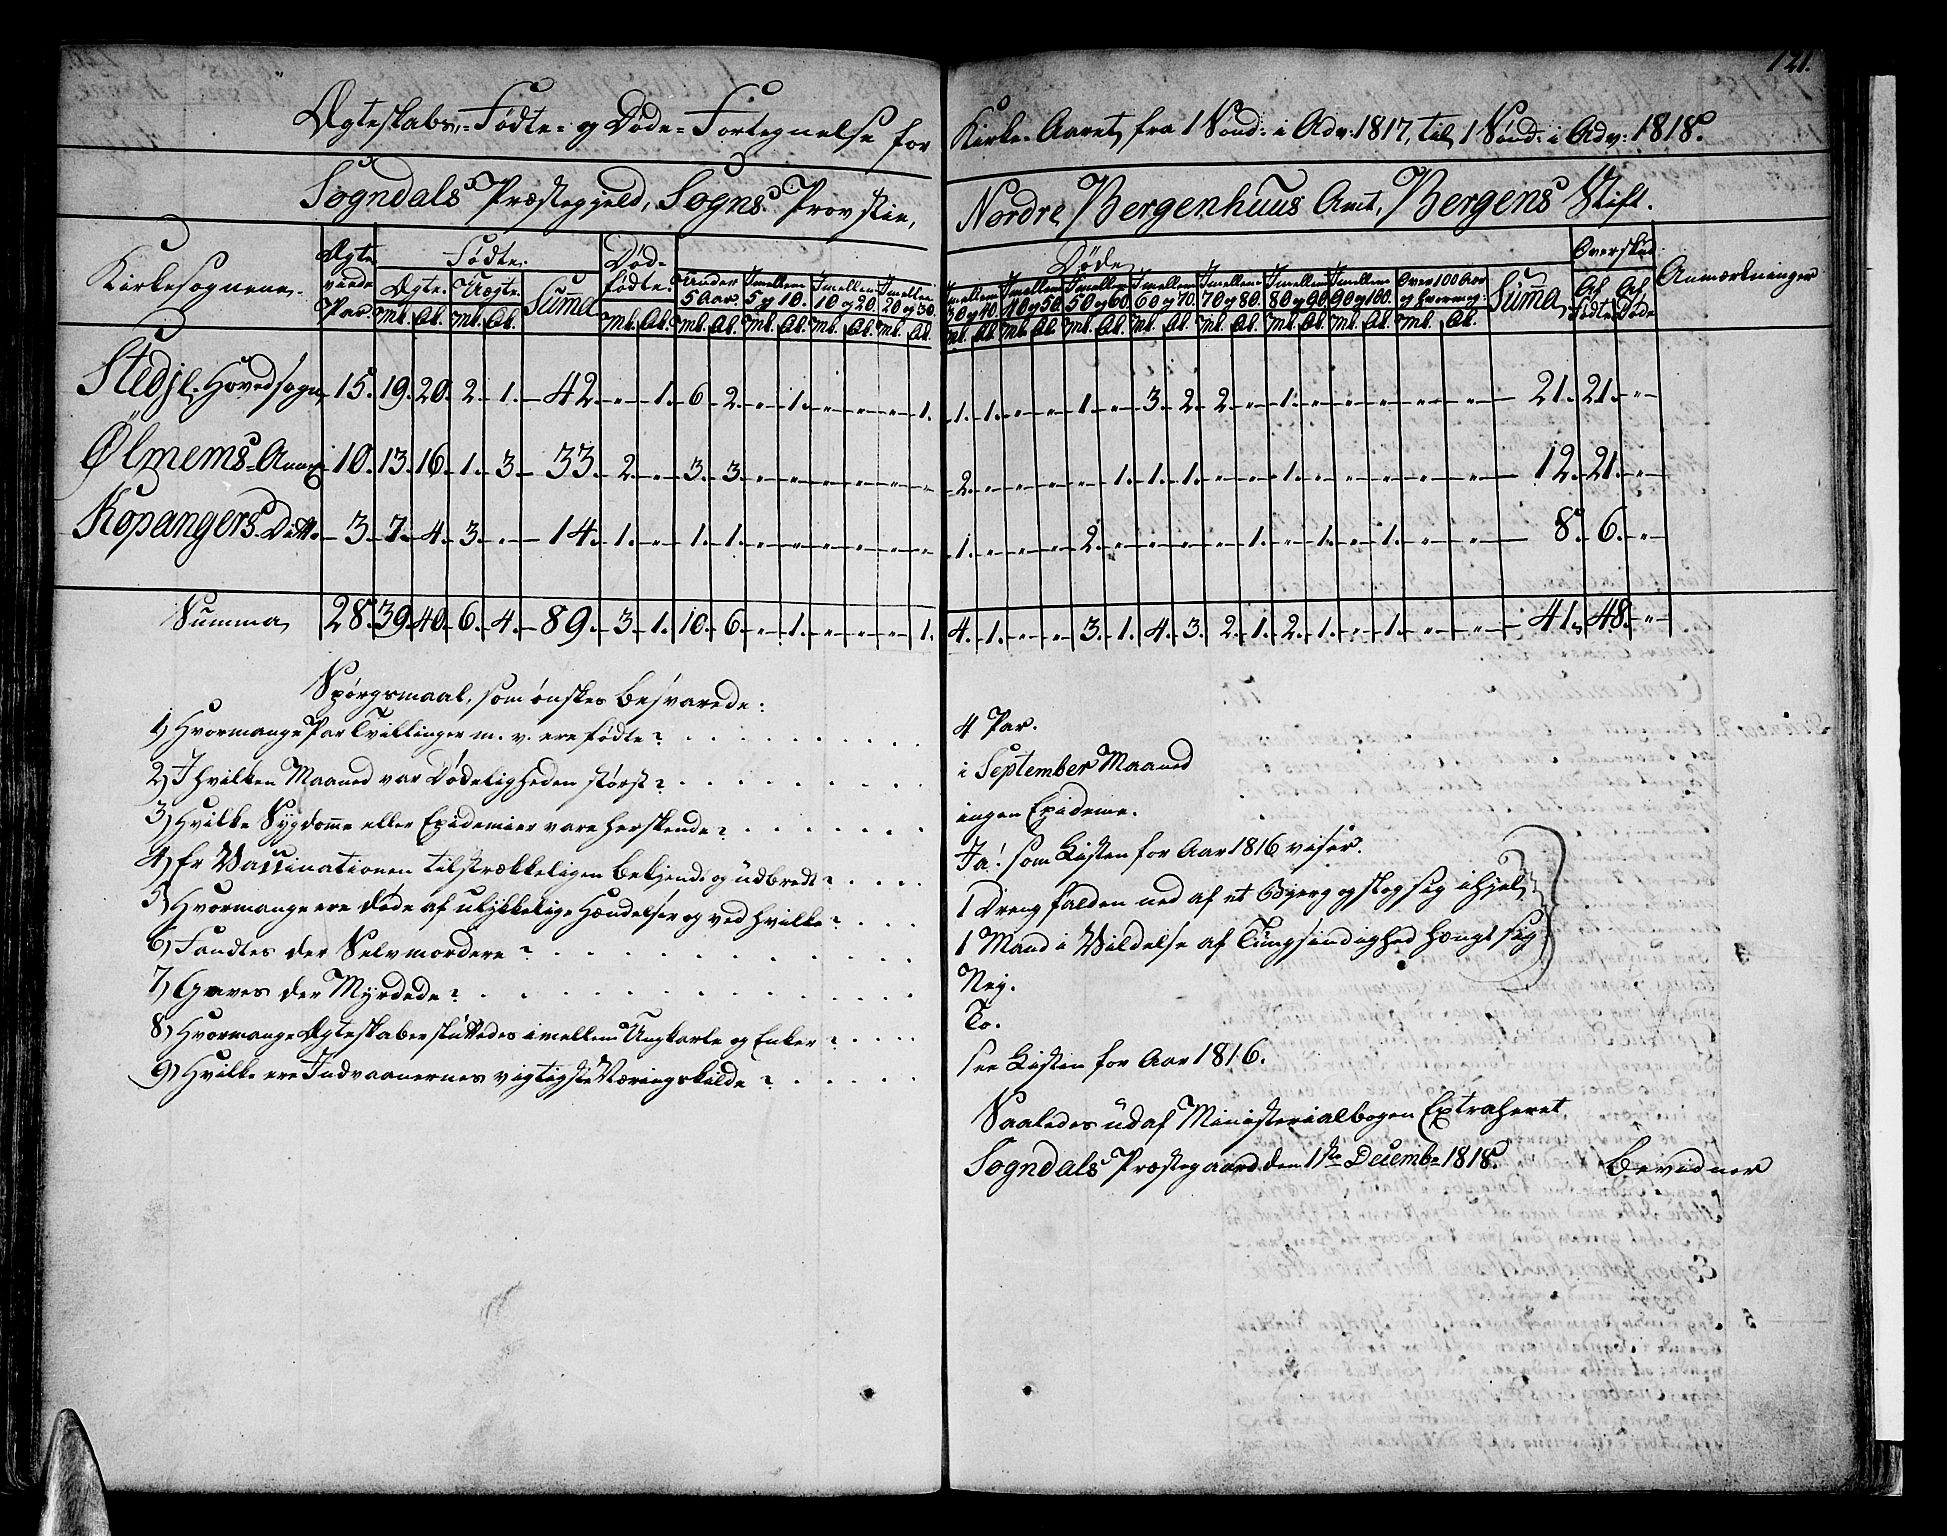 121.
Ægteskabs,- Fødte- og Døde- Fortegnelse for Kirke-Aaret, fra 1 Sønd: i Adv: 1817, til 1 Sønd: i Adv: 1818.
Sogndals Præstegjeld, Sogns Provstie, Nordre Bergenhuus Amt, Bergens Stift.
Kirkesognene. Ægte viede Par. Fødte. Død-fødte. Døde Overskud Anmærkninger
Ægte. Uægte. Suma Under 5 Aar. Imellem 5 og 10. Imellem 10 og 20. Imellem 20 og 30. Imellem 30 og 40. Imellem 40 og 50. Imellem 50 og 60. Imellem 60 og 70. Imellem 70 og 80. Imellem 80 og 90. Imellem 90 og 100. Over 100 Aar og hvormeg: Summa Af Fødte Af Døde
Stedje Hovedsogn 15. 19. 20. 2. 1. 42. " 1. 6. 2. " 1. " " " 1. 1. 1. " " 1. " 3. 2. 2. " 1. " " " " " 21. 21. "
Ølmems-Annex 10. 13. 16. 1. 3. 33. 2. " 3. 3. " " " " " " 2. " " " " 1. 1. 1. " " 1. " " " " " 12. 21. "
Kopangers Ditto. 3. 7. 4. 3. " 14. 1. " 1. 1. " " " " " " 1. " " " 2. " " " " 1. " 1. " 1. " " 8. 6. "
Summa 28. 39. 40. 6. 4. 89. 3. 1. 10. 6. " 1. " " " 1. 4. 1. " " 3. 1. 4. 3. 2. 1. 2. 1. " 1. " " 41. 48. "
Spørgsmaal, som ønskes besvarede:
1) Hvormange Par Tvillinger m. v. ere fødte? 4 Par.
2) I hvilken Maaned var Dødeligheden størst? i September Maaned
3) Hvilke Sygdomme eller Epidemier vare herskende? ingen Epidemie.
4) Er Vaccinationen tilstrækkeligen bekjendt og udbredt? Ja! som Listen for Aar 1816 viser.
5) Hvormange ere døde af ulykkelige Hændelser og ved hvilke? 1 Dreng falden ned af et Bjerg og slog sig ihjel
6) Fandtes der Selvmordere? 1 Mand i Vildelse af Tungsindighed hængt sig
7) Gaves der Myrdede? Nej.
8) Hvormange Ægteskaber stiftedes imellem Ungkarle og Enker? To.
9) Hvilke ere Indvaanernes vigtigste Næringskilde? see Listen for Aar 1816.
Saaledes udaf Ministerialbogen Extraheret.
Sogndals Præstegaard den 1ste Decemb: 1818. bevidner